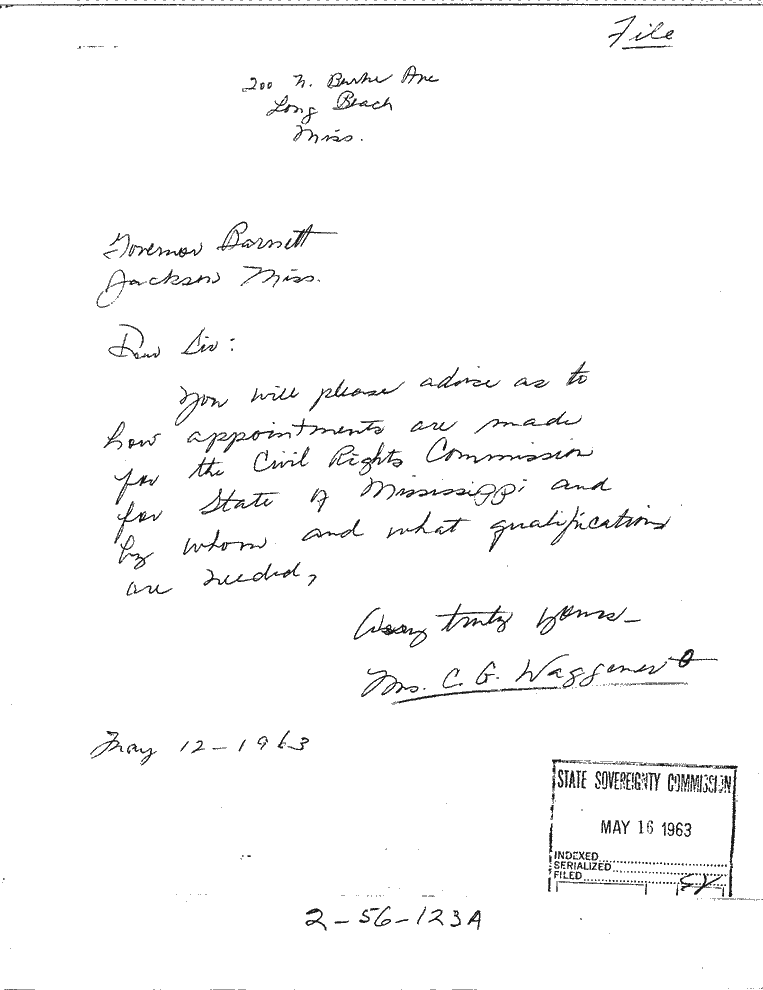 File
200 N. Burke Ave
Long Beach
Miss.
Governor Barnett
Jackson Miss.
Dear Sir:
You will please advise as to
how appointments are made
for the Civil Rights Commission
for State of Mississippi and
by whom and what qualifications
are needed,
Very truly yours—
Mrs. C. G. Waggener
May 12-1963
STATE SOVEREIGNTY COMMISSION
MAY 16 1963
INDEXED
SERIALIZED
FILED
2-56-123A